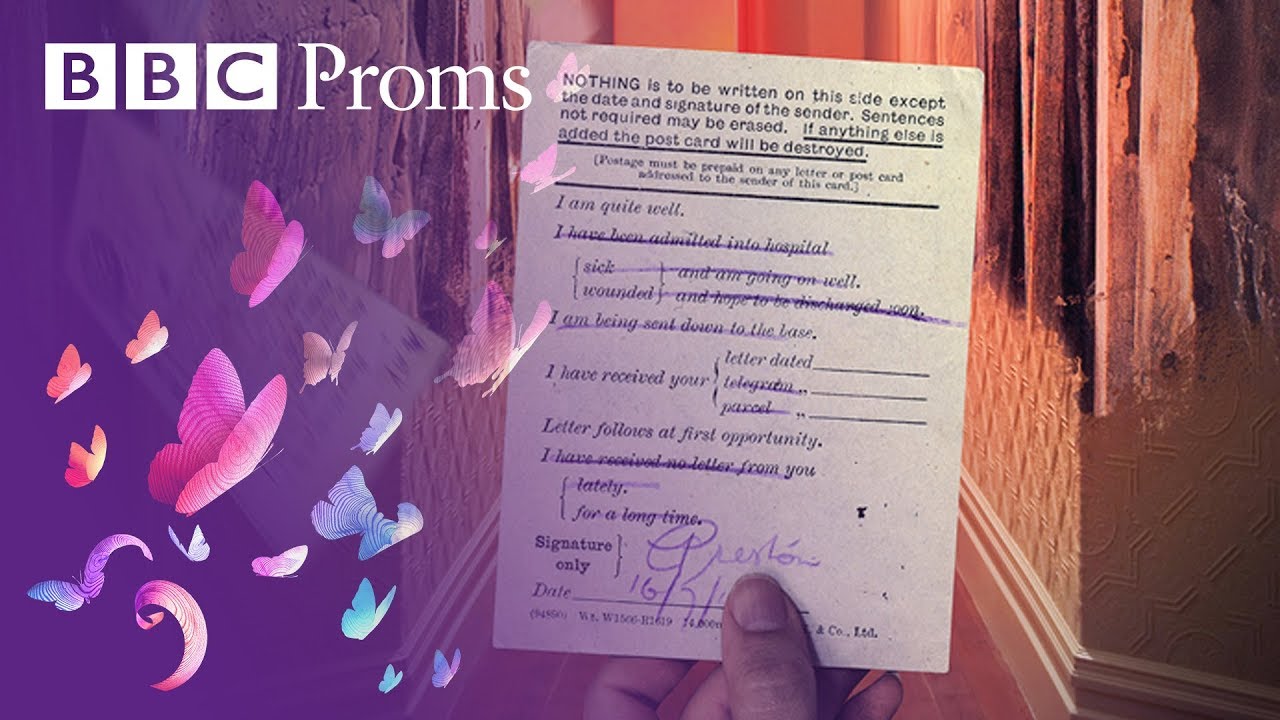 BBC Proms
NOTHING is to be written on this side except
the date and signature of the sender. Sentences
not required may be erased. If anything else is
added the post card will be destroyed.
[Postage must be prepaid on any letter or post card
addressed to the sender of this card.]
I am quite well.
I have been admitted into hospital
sick and am going on well.
wounded and hope to be discharged soon.
I am being sent down to the base.
letter dated
I have received your
telegram „
parcel „
Letter follows at first opportunity.
I have received no letter from you
lately.
for a long time.
Signature Preston
only
Date 16/
(94890) Wt. W1566-R1619 & Co., Ltd.